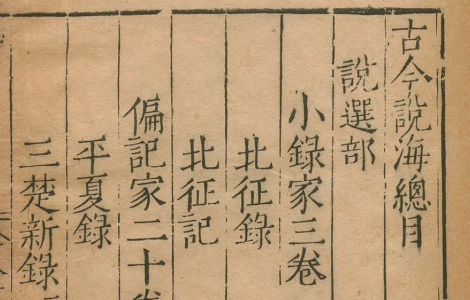 古今說海總目
說選部
小錄家三卷
北征錄
北征記
偏記家二十卷
平夏録
三楚新錄